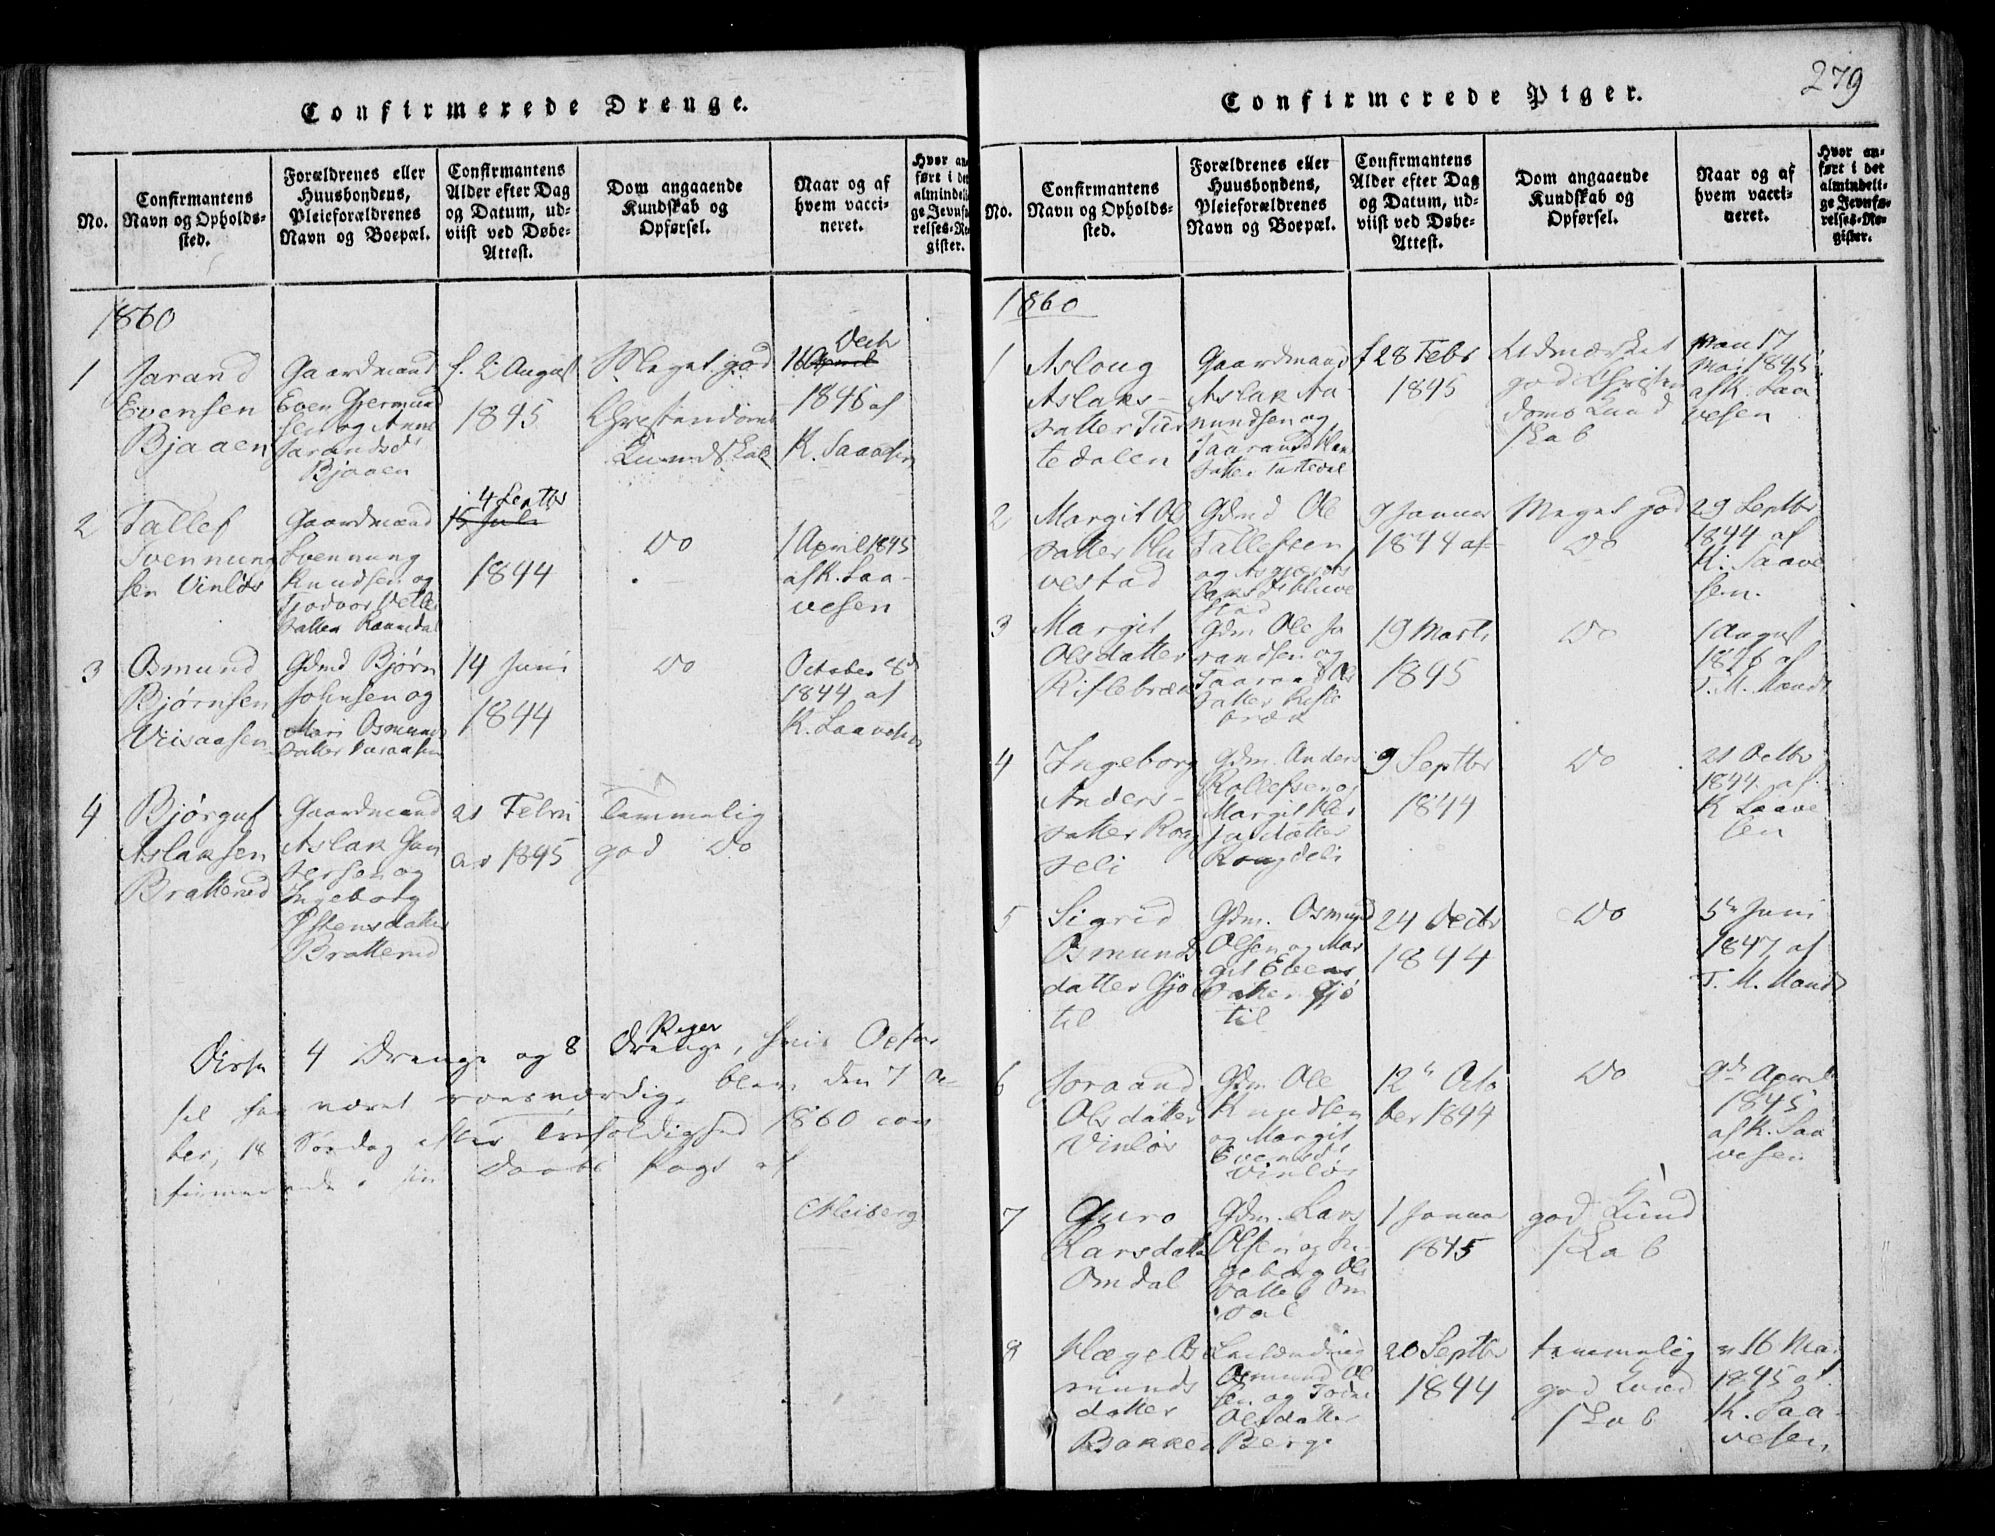 279
Confirmerede Drenge.
No.
Confirmantens
Navn og Opholds-
sted.
Forældrenes eller
Huusbondens,
Pleieforældrenes
Navn og Boepæl.
Confirmantens
Alder efter Dag
og Datum, ud-
viist ved Døbe-
Attest.
Dom angaaende
Kundskab og
Opførsel.
Naar og af
hvem vacci-
neret.
Hvor an
ført i de
almindeli
ge Jevnfø
relses-Re
gister.
1860
1
Jarand
Evensen
Bjaaen
Gaardmand
Even Gjermund
sen og Anne
Jarandsd
Bjaaen
f. 2 August
1845
Meget god
Christendoms
Kundskab
Dech
16 April
1846 af
K. Saavesen
2
Tallef
Svennung
sen Vinlös
Gaardmand
Svennung
Knudsen og
datter
4 Septbr
15 Juli
1844
Do
1 April 1845
af K. Saa-
vesen
3
Osmund
Bjørnsen
Viisaasen
Gdmd Bjørn
Johnsen og
Mari Osmunds
datter
14 Juni
1844
Do
October 8d
1844 af
K. Saavesen
4
Bjørguf
Aslaksen
Bratterud
Gaardmand
Aslak
og
Ingeborg
Østensdatter
Bratterud
21 Febru
ar 1845
Temmelig
god Do
Disse 4 Drenge og 8 Drenge,
Piger
blev den 7 Oc-
ber, 18 Søndag efter Trefoldighed 1860 con
firmerede i
af
Heiberg
Confirmerede Piger.
No.
Confirmantens
Navn og Opholds-
sted.
Forældrenes eller
Huusbondens,
Pleieforældrenes
Navn og Boepæl.
Confirmantens
Alder efter Dag
og Datum, ud-
viist ved Døbe-
Attest.
Dom angaaende
Kundskab og
Opførsel.
Naar og af
hvem vacci-
neret.
Hvor an-
ført i det
almindeli-
ge Jevnfø-
relses-Re-
gister.
1860
1
Aslaug
Aslaks-
datter
tedalen
Gaardmand
Aslak Aa
mundsen og
f 28 Febr
1845
Udmærket
god Christen
doms Kund
skab
17
Mai 1845
af K. Saa
vesen
2
Margit Ols
datter Klu
vestad
Gdmd Ole
Tallefsen
og
9 Januar
1844
Meget god
Do
29 Septbr
1844 af
K. Saave
sen.
3
Margit
Olsdatter
Riflebræk
Gdm Ole Ja
randsen og
datter Rifle
bræk
19 Marts
1845
Do
1 August
af
T. M. Mandt
4
Ingeborg
Anders-
datter
Gdm. Anders
Rollefsen og
Margit
datter
9 Septbr
1844
Do
21 Octbr
1844 af
K Saave
sen
5
Sigrid
Osmunds
datter Gjø
til
Gdm. Osmund
Olsen og Mar
git Evens
datter Gjø
til
24 Decbr
1844
Do
5te Juni
1847 af
T. M. Mandt
6
Joraand
Olsdatter
Vinløs
Gdm. Ole
Knudsen
og Margit
Evensd
Vinløs
12te Octo
ber 1844
Do
9de April
1845
af K. Saa
vesen
7
Guro
Larsdatter
Omdal
Gdm. Lars
Olsen og In-
geborg Ols
datter Om
dal
1 Januar
1845
god Kund
skab
8
Hæge Os
munds
datter
Bakken
Osmund Ol
sen og
Olsdatter
Berge
20 Septbr
1844
temmelig
god Kund
skab
16 Mai
1845 af
K. Saa-
vesen